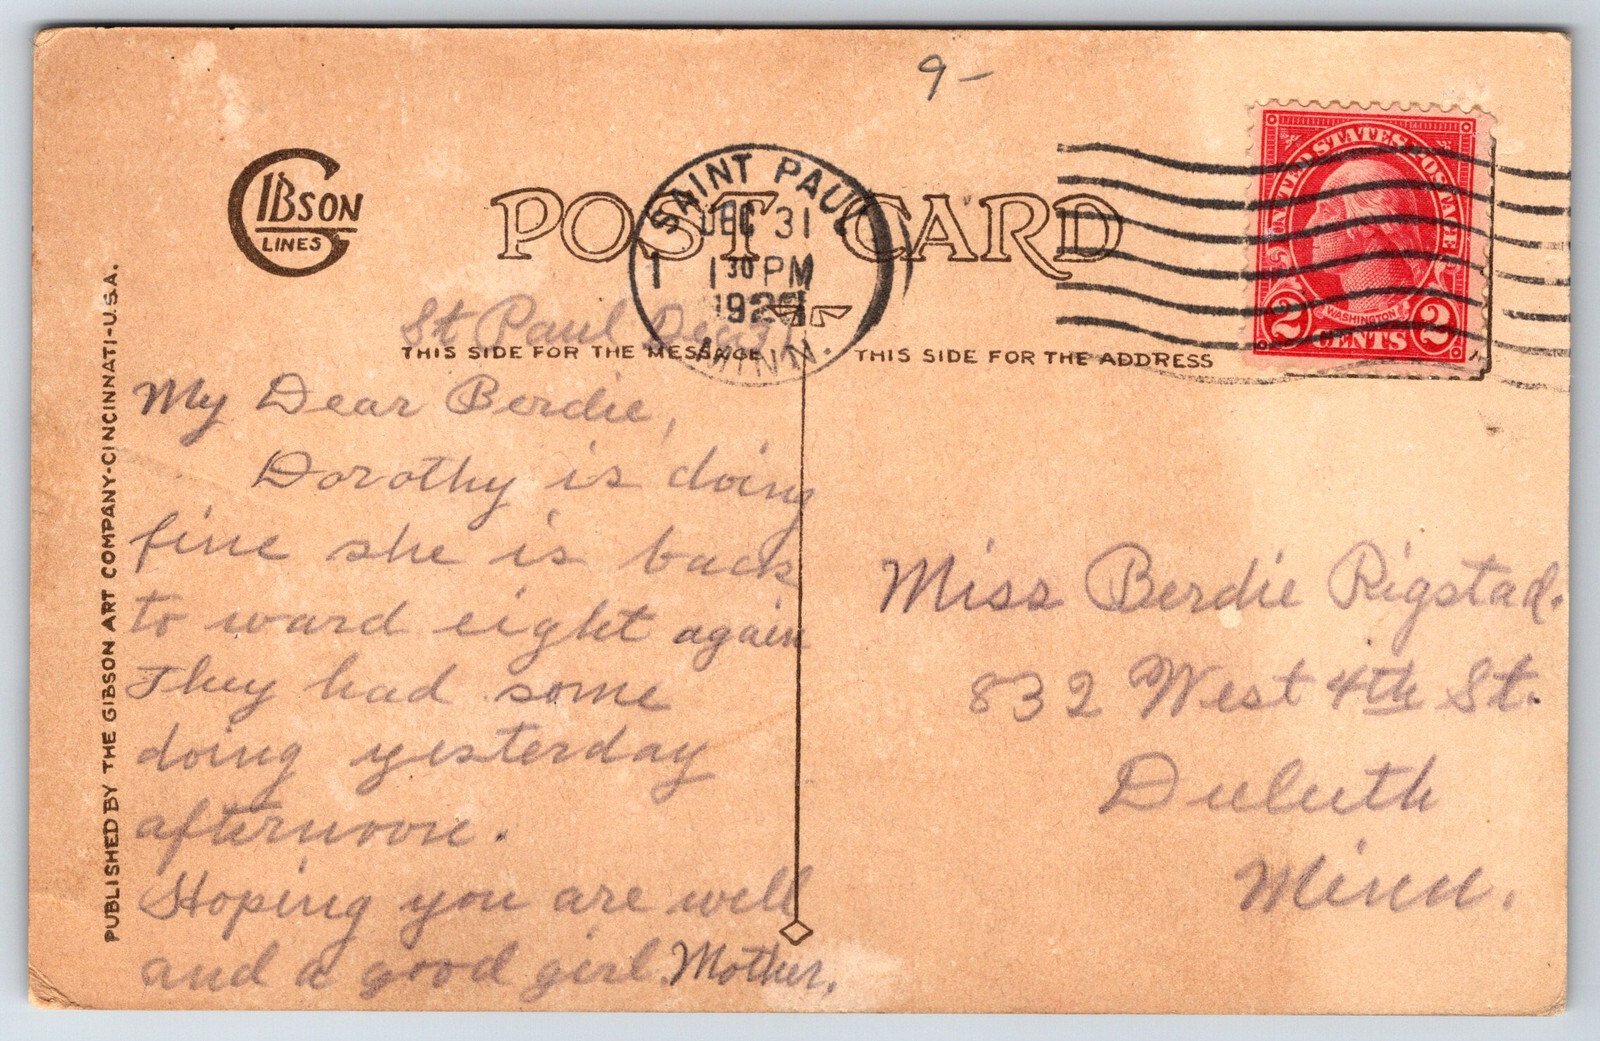 9-
GIBSON
LINES
POST CARD
SAINT PAUL
DEC 31
1 1 30 PM
MINN.
UNITED STATES POSTAGE
WASHINGTON
2 CENTS 2
St Paul Dec 31
THIS SIDE FOR THE MESSAGE
THIS SIDE FOR THE ADDRESS
PUBLISHED BY THE GIBSON ART COMPANY-CINCINNATI-U.S.A.
My Dear Berdie,
Dorothy is doing
fine she is back
to ward eight again
They had some
doing yesterday
afternoon.
Hoping you are well
and a good girl. Mother.
Miss Berdie Rigstad.
832 West 4th St.
Duluth
Minn.